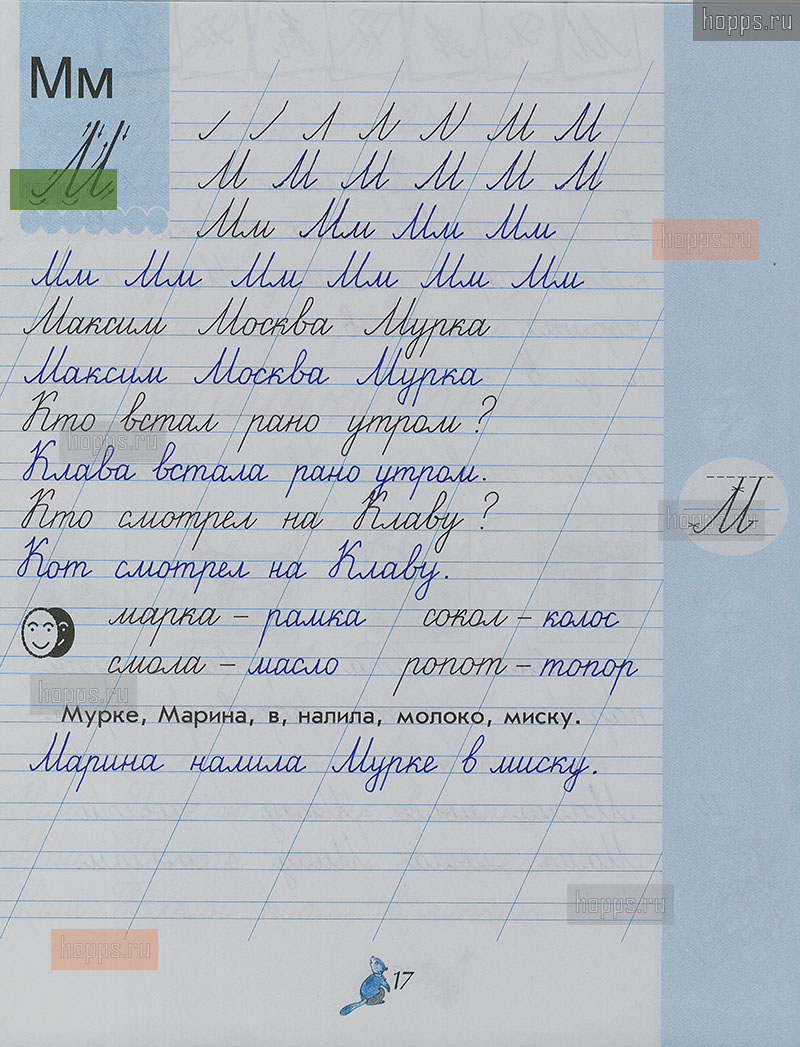 hopps.ru
Мм
М
М М М
М М М М М М
Мм Мм Мм Мм
hopps.ru
Мм Мм Мм Мм Мм Мм
Максим Москва Мурка
Максим Москва Мурка
Кто встал рано утром?
hopps.ru
Клава встала рано утром.
Кто смотрел на Клаву?
hopps.ru
М
Кот смотрел на Клаву.
марка – рамка сокол – колос
смола – масло ропот – топор
hopps.ru
Мурке, Марина, в, налила, молоко, миску.
Марина налила Мурке в миску.
hopps.ru
hopps.ru
17